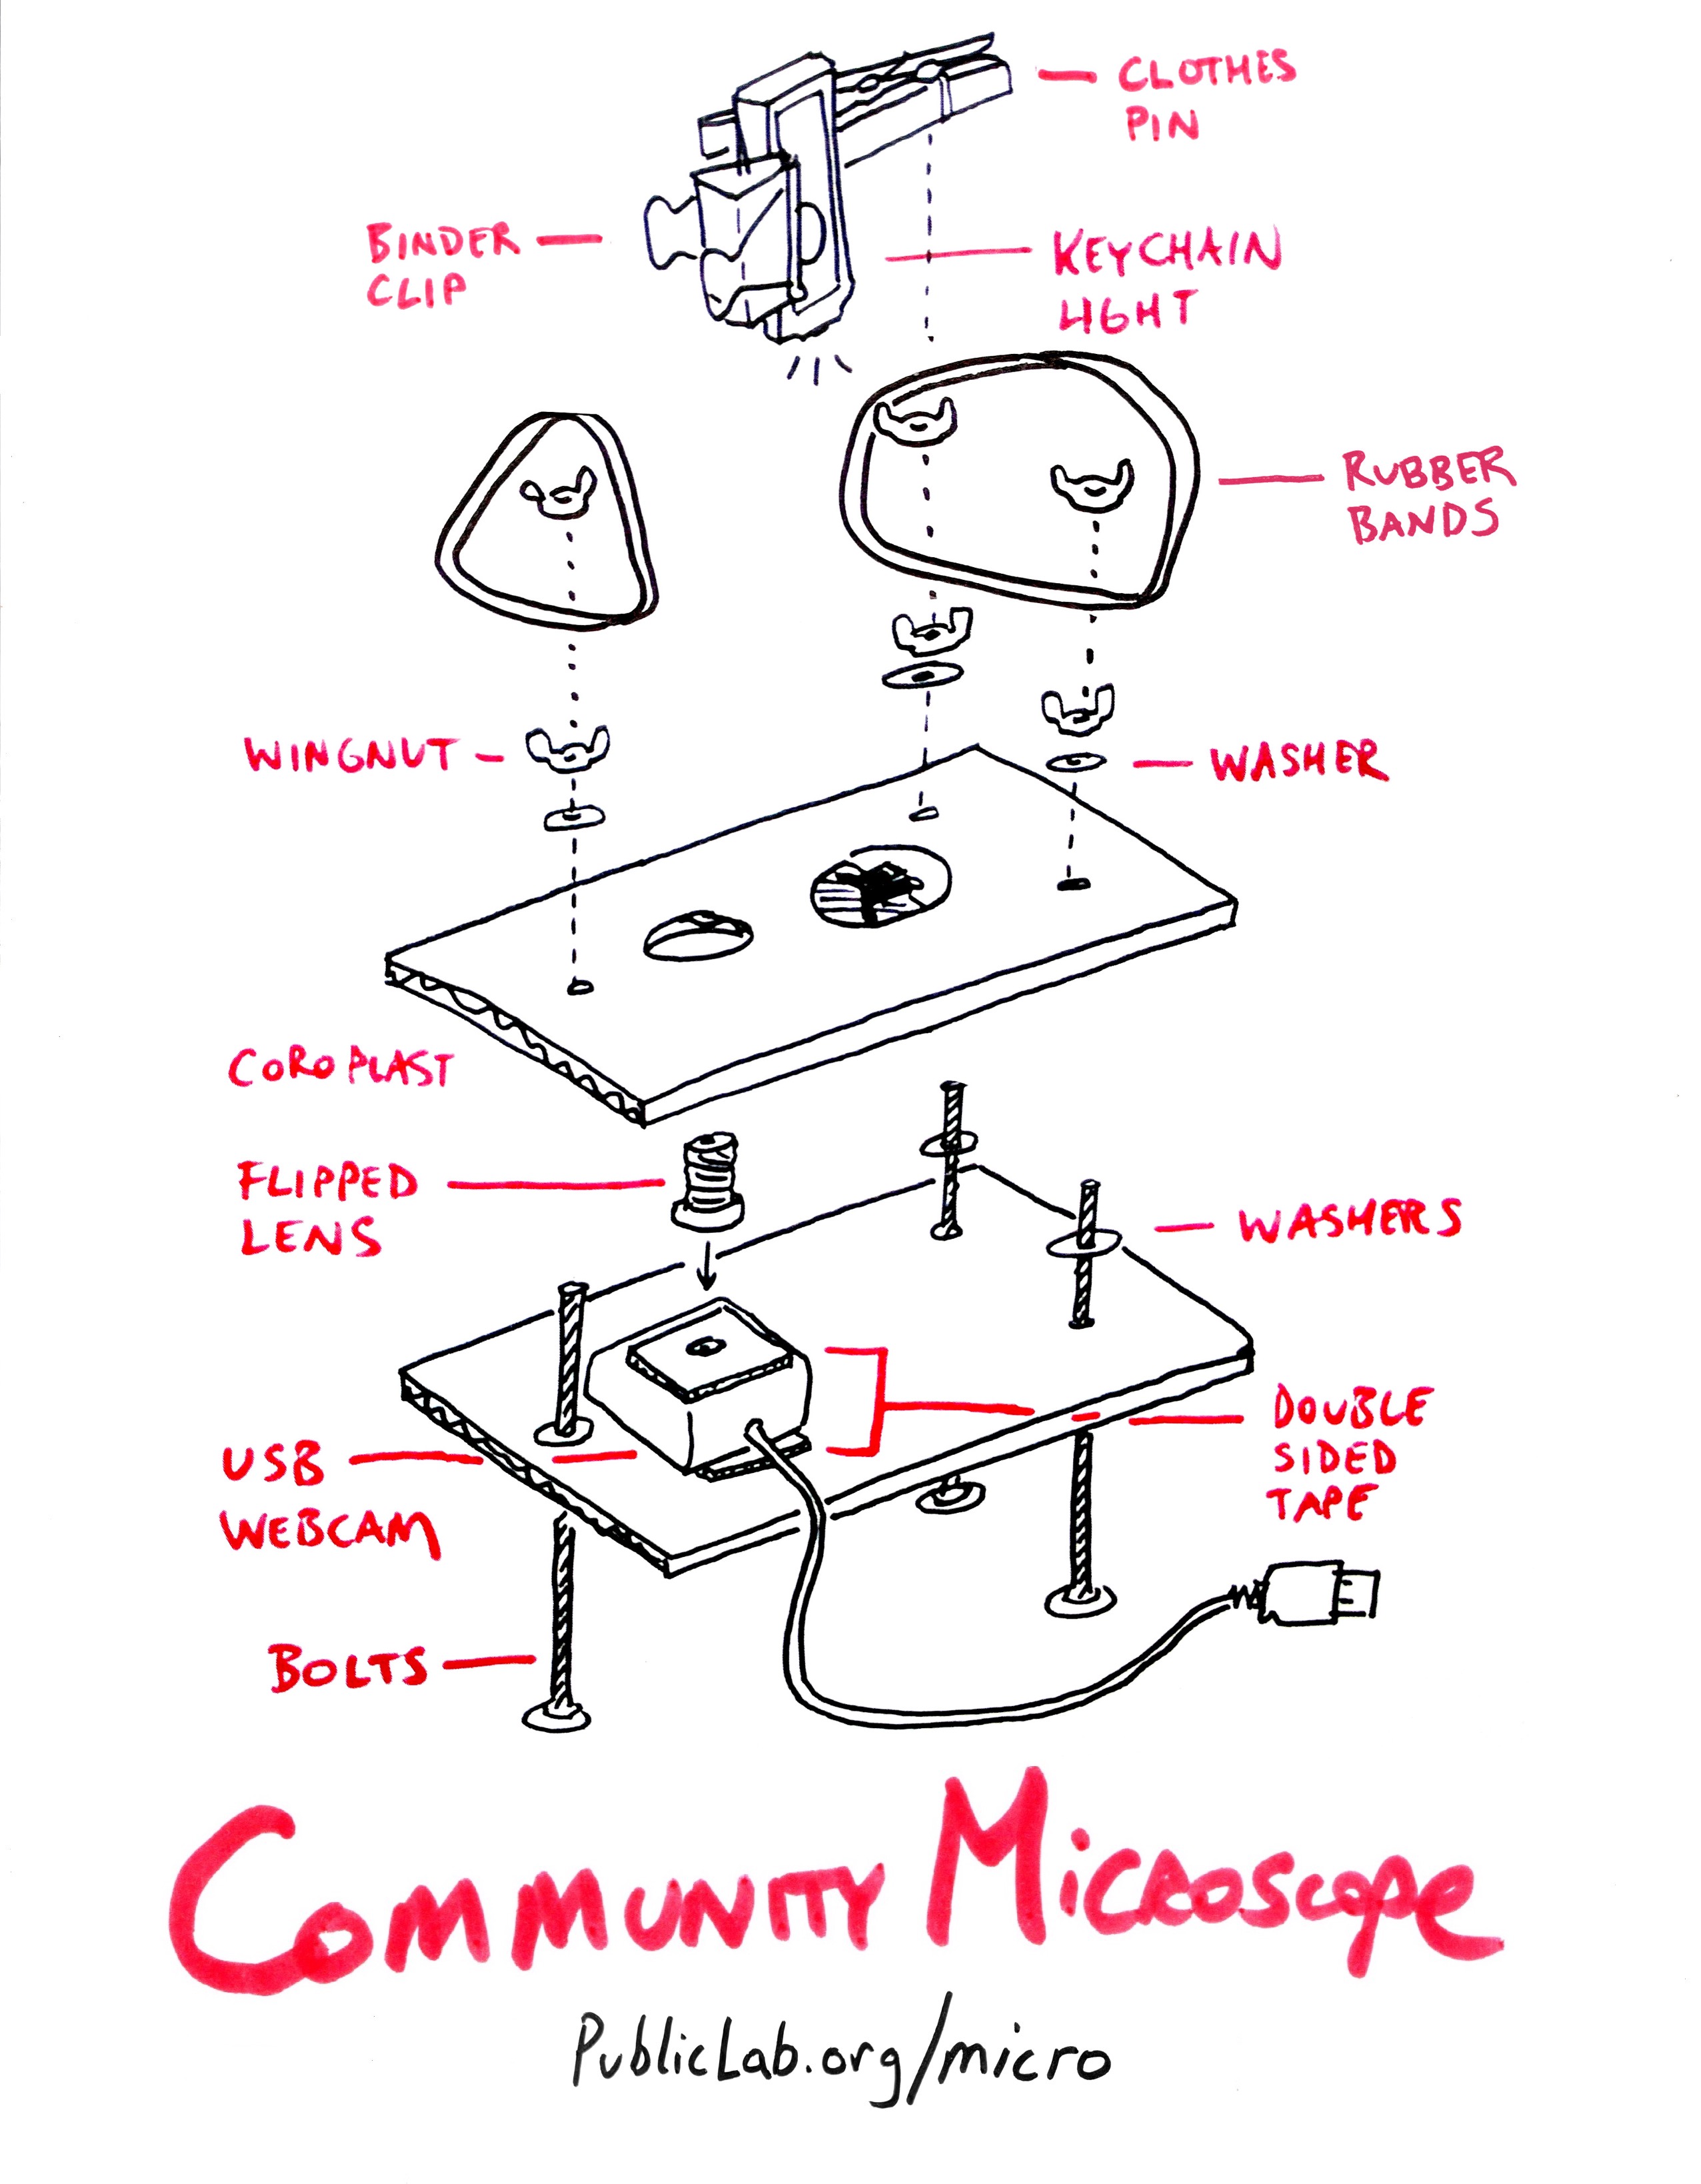 CLOTHES
PIN
BINDER
CLIP
KEYCHAIN
LIGHT
RUBBER
BANDS
WINGNUT
WASHER
COROPLAST
FLIPPED
LENS
WASHERS
DOUBLE
SIDED
TAPE
USB
WEBCAM
BOLTS
COMMUNITY MICROSCOPE
PublicLab.org/micro